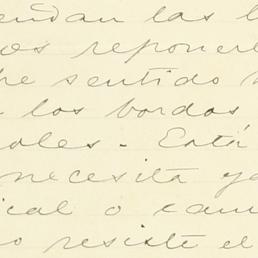 endan las l
os reponerl
re sentido
los bordos
oles - Está
necesita ya
ical o cam
o resiste el